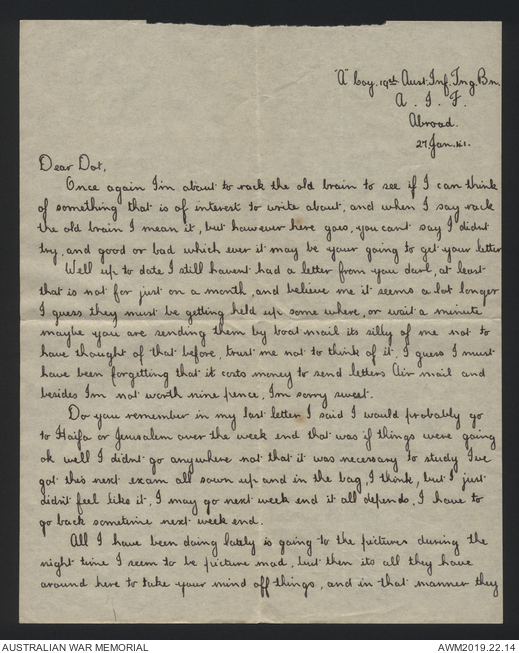 "A" Coy. 19th Aust. Inf. Tng. Bn.
A. I. F.
Abroad.
27. Jan. 41.
Dear Dot,
Once again I'm about to rack the old brain to see if I can think
of something that is of interest to write about, and when I say rack
the old brain I mean it, but however here goes, you cant say I didnt
try, and good or bad which ever it may be your going to get your letter
Well up to date I still havent had a letter from you darl, at least
that is not for just on a month, and believe me it seems a lot longer
I guess they must be getting held up some where, or wait a minute
maybe you are sending them by boat mail its silly of me not to
have thought of that before, trust me not to think of it, I guess I must
have been forgetting that it costs money to send letters Air mail and
besides I'm not worth nine pence, I'm sorry sweet.
Do you remember in my last letter I said I would probably go
to Haifa or Jerusalem over the week end that was if things were going
ok well I didnt go anywhere not that it was necessary to study I've
got this next exam all sown up and in the bag, I think, but I just
didn't feel like it, I may go next week end it all depends, I have to
go back sometime next week end.
All I have been doing lately is going to the pictures during the
night time I seem to be picture mad, but then its all they have
around here to take your mind off things, and in that manner they
AUSTRALIAN WAR MEMORIAL
AWM2019.22.14